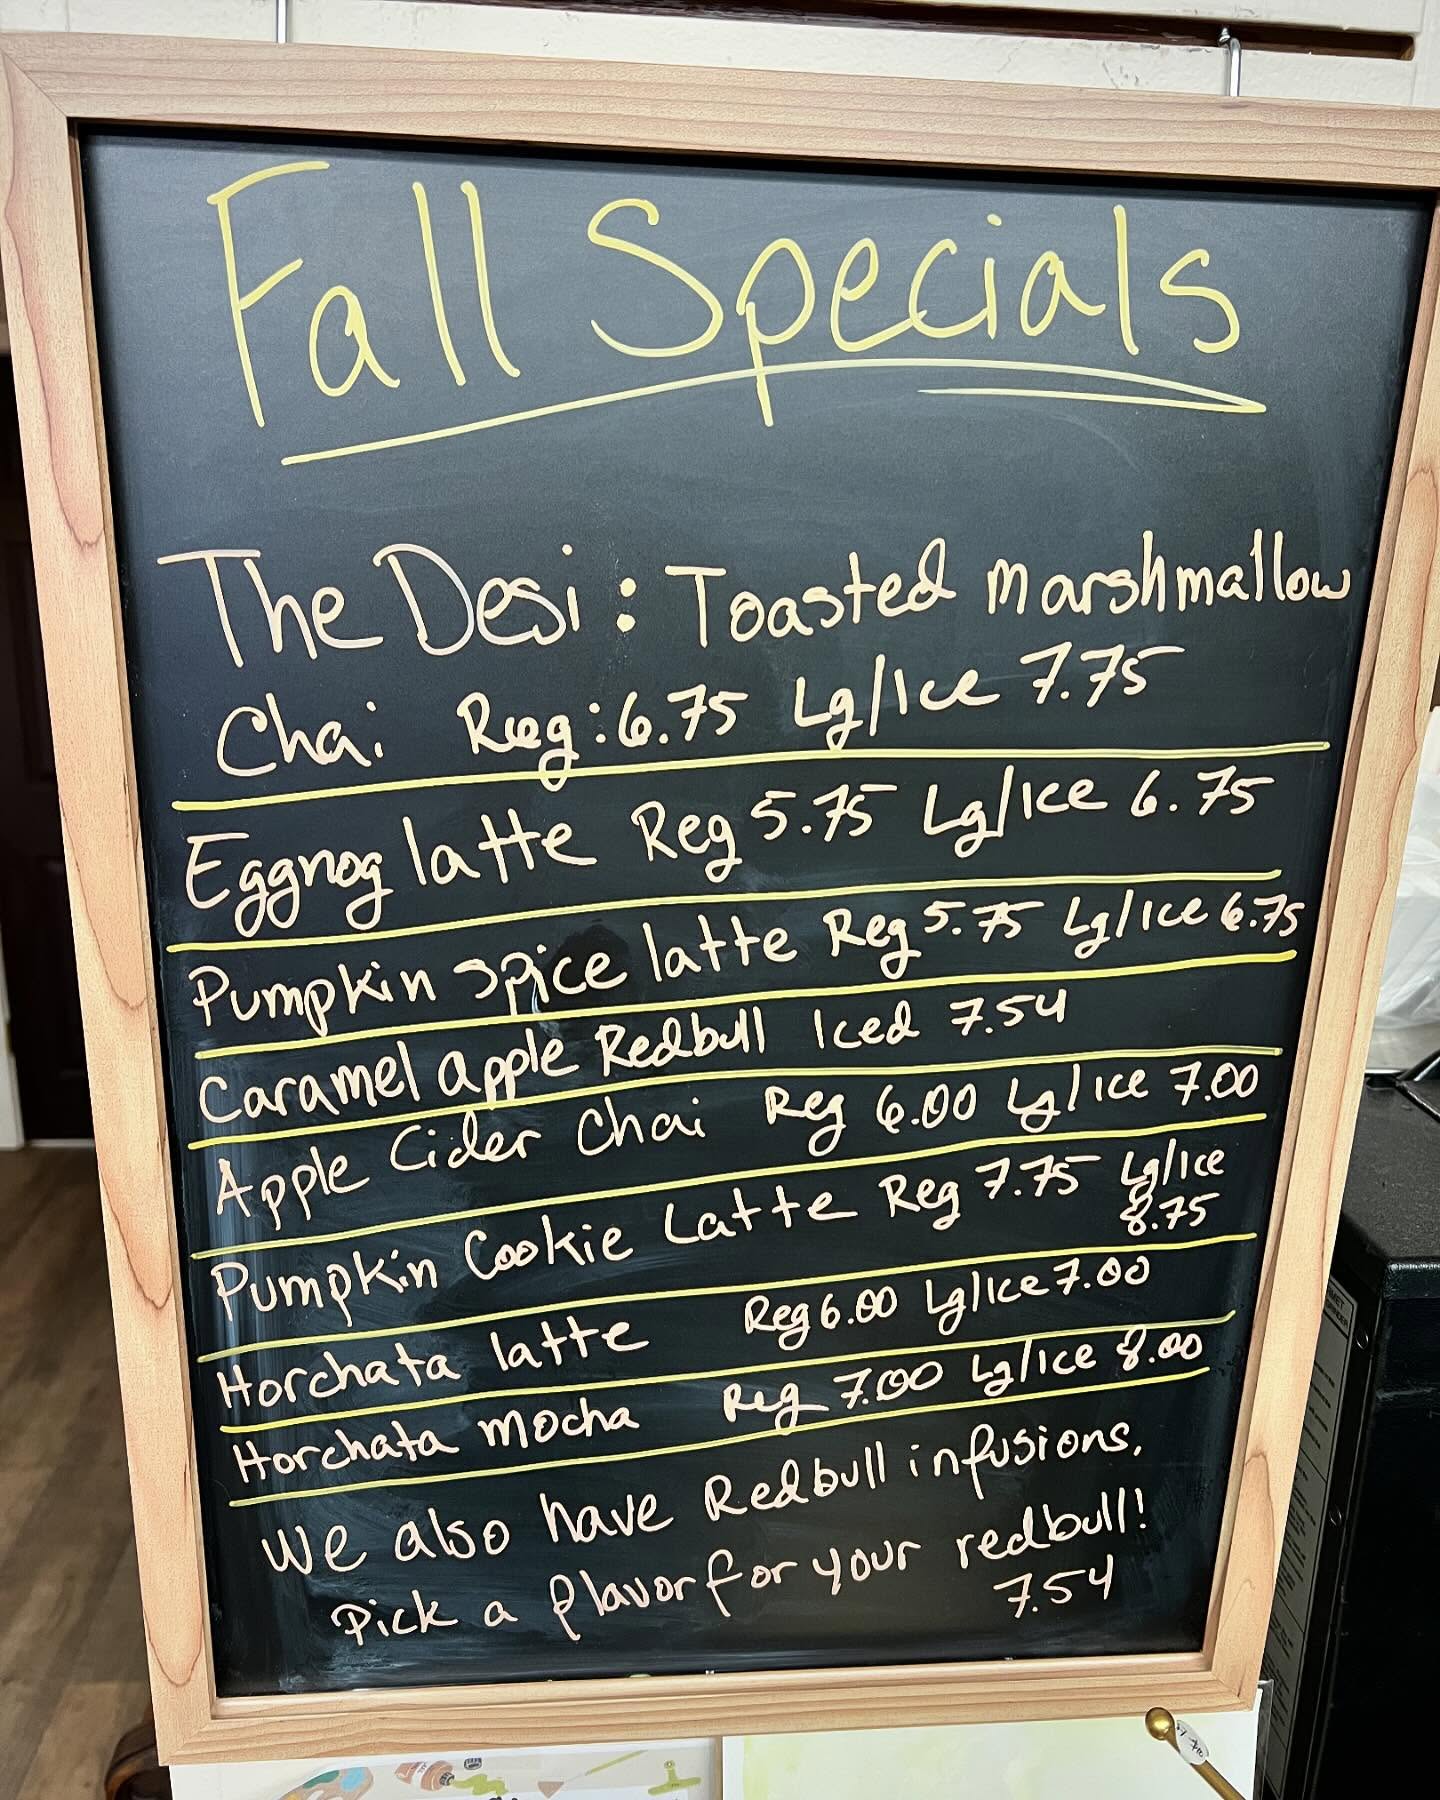 Fall Specials
The Desi: Toasted Marshmallow
Chai Reg: 6.75 Lg/Ice 7.75
Eggnog latte Reg 5.75 Lg/Ice 6.75
Pumpkin spice latte Reg 5.75 Lg/Ice 6.75
Caramel apple Redbull Iced 7.54
Apple Cider Chai Reg 6.00 Lg/Ice 7.00
Pumpkin Cookie Latte Reg 7.75 Lg/Ice
8.75
Horchata latte Reg 6.00 Lg/Ice 7.00
Horchata mocha Reg 7.00 Lg/Ice 8.00
We also have Redbull infusions.
Pick a flavor for your redbull!
7.54